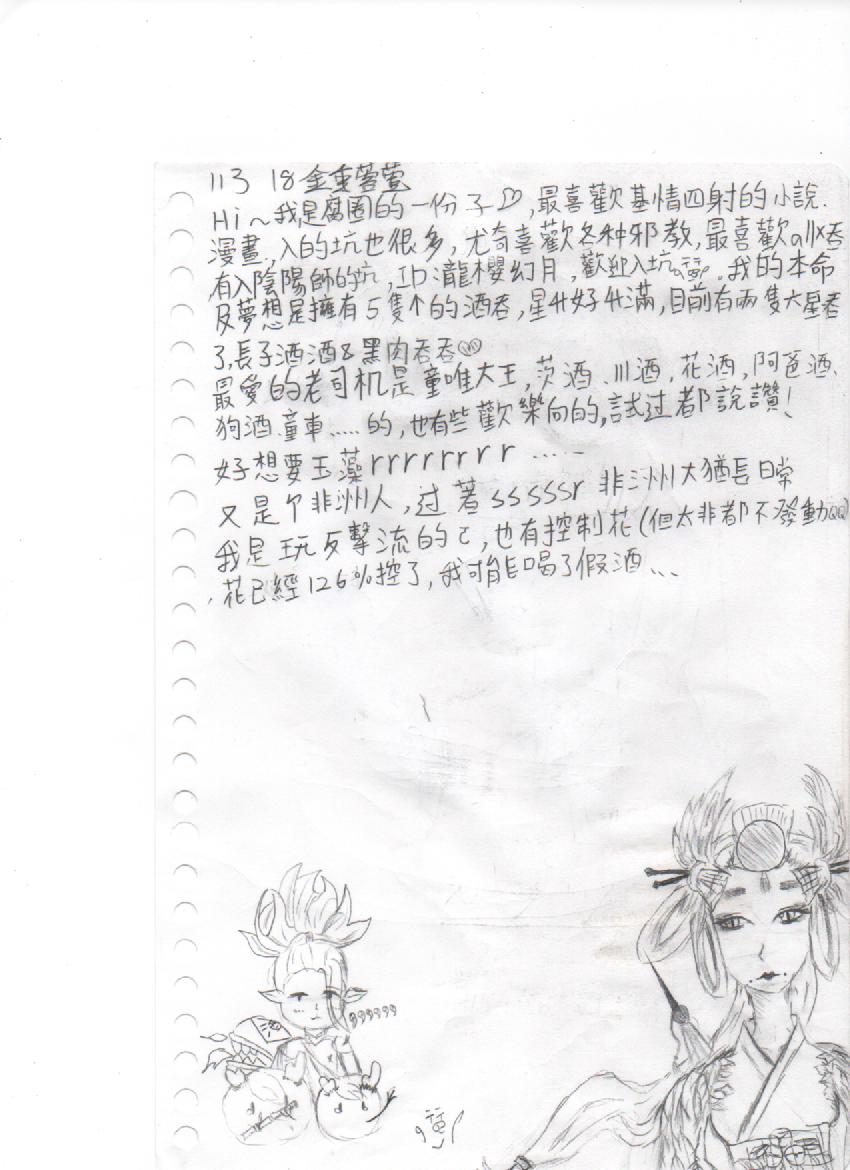 113 18金重蓉萱
Hi~我是腐圈的一份子♡,最喜歡基情四射的小說.
漫畫,入的坑也很多,尤奇喜歡各種邪教,最喜歡all吞
有入陰陽師的坑,ID瀧櫻幻月,歡迎入坑。我的本命
及夢想是擁有5隻个的酒吞,星升好升滿,目前有兩隻六星吞
了,長子酒酒&黑肉吞吞
最愛的老司机是童唯大王,茨酒、川酒,花酒,阿爸酒、
狗酒、童車.....的,也有些歡樂向的,試过都說讚!
好想要玉藻rrrrrrrr ......
又是个非洲人,过著sssssr 非洲大猶長日常
我是玩反擊流的c,也有控制花(但太非都不潑動QQ)
.花已經126%控了,我可能喝了假酒...
酒